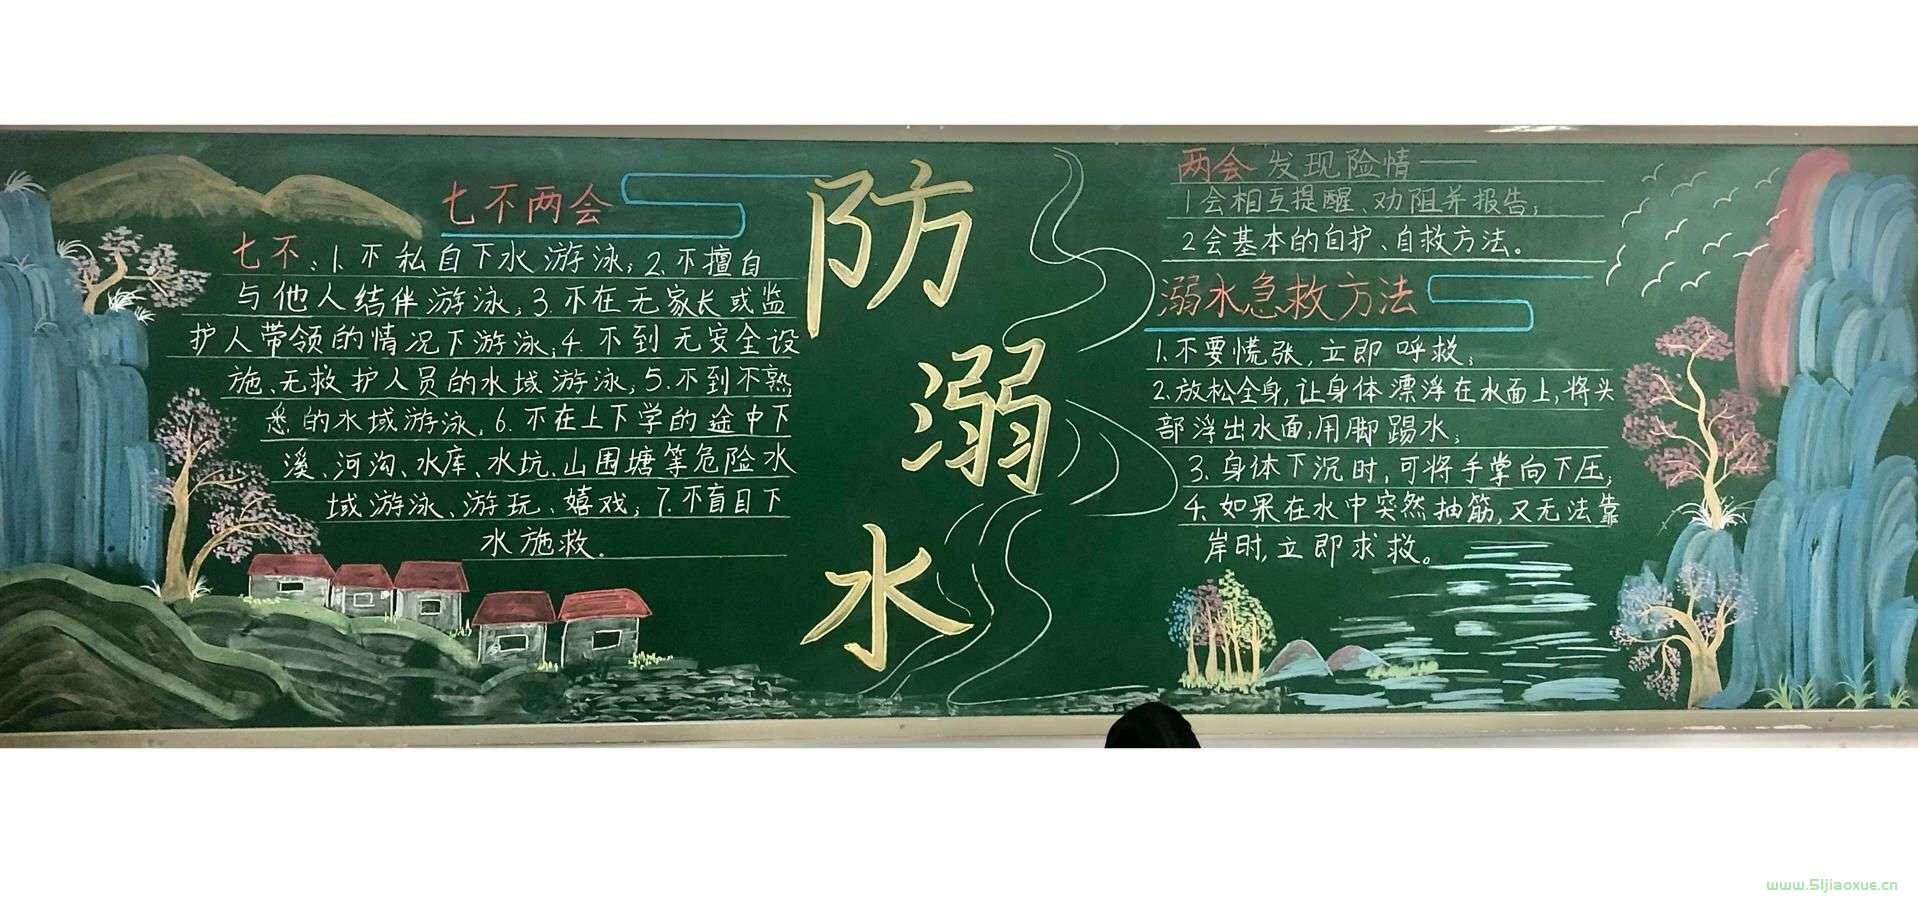 七不两会
七不：1.不私自下水游泳；2.不擅自
与他人结伴游泳；3.不在无家长或监
护人带领的情况下游泳；4.不到无安全设
施、无救护人员的水域游泳；5.不到不熟
悉的水域游泳；6.不在上下学的途中下
溪、河沟、水库、水坑、山围塘等危险水
域游泳、游玩、嬉戏；7.不盲目下
水施救。
防
溺
水
两会 发现险情——
1会相互提醒、劝阻并报告；
2会基本的自护、自救方法。
溺水急救方法
1.不要慌张，立即呼救；
2.放松全身，让身体漂浮在水面上，将头
部浮出水面，用脚踢水；
3.身体下沉时，可将手掌向下压；
4.如果在水中突然抽筋，又无法靠
岸时，立即求救。
www.51jiaoxue.cn